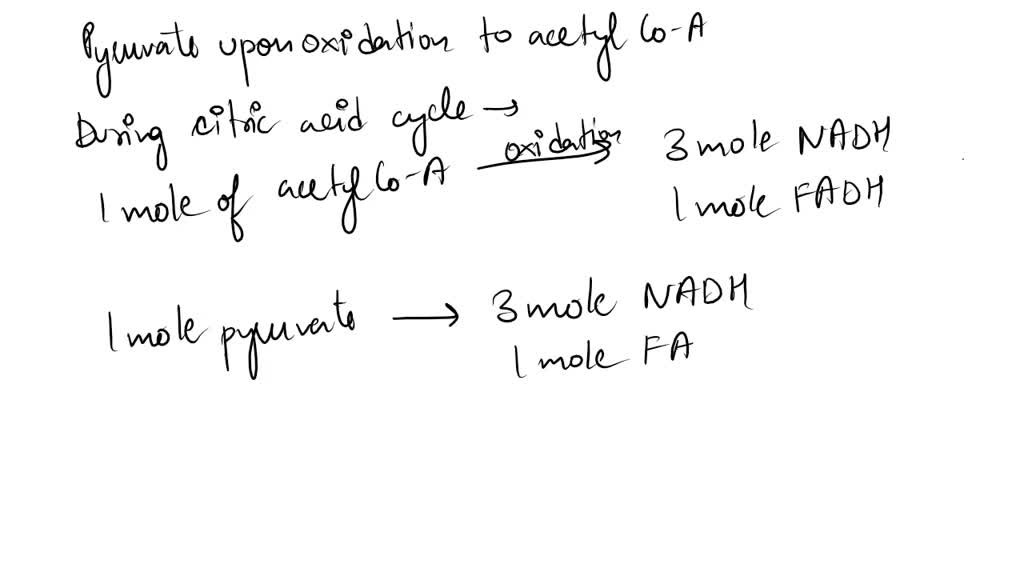 Pyruvate upon oxidation to acetyl Co-A
During citric acid cycle →
1 mole of acetyl Co-A oxidation → 3 mole NADH
1 mole FADH
1 mole pyruvate → 3 mole NADH
1 mole FA